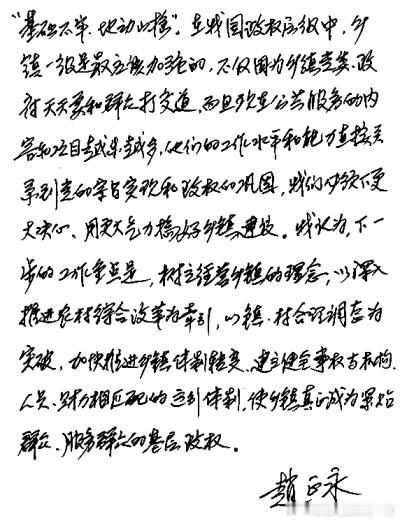 “基础不牢，地动山摇”。在我国政权层级中，乡
镇一级是最应该加强的，不仅因为乡镇党委、政
府天天要和群众打交道，而且现在公共服务的内
容和项目越来越多，他们的工作水平和能力直接关
系到党的宗旨实现和政权的巩固，我们必须下更
大决心、用更大气力搞好乡镇建设。我认为，下一
步的工作重点是，树立经营乡镇的理念，以深入
推进农村综合改革为牵引，以镇、村合理调查为
突破，加快推进乡镇体制转变，建立健全事权与机构、
人员、财力相匹配的运行体制，使乡镇真正成为累始
群众、服务群众的基层政权。
赵正永